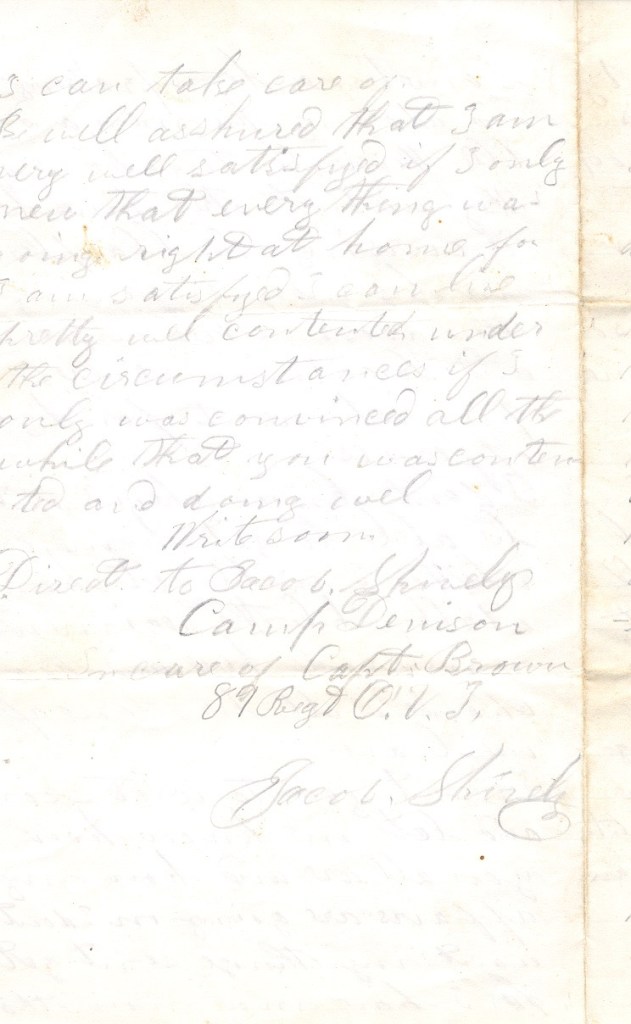 s can take care of
Be well asshured that I am
very well satisfyed if I only
new that every thing was
oing right at home for
I am satisfyed I can live
pretty wel contented under
the circumstances if I
only was convinced all the
while that you was conten
ted and doing wel
Write soon
Direct to Jacob. Shively
Camp Denison
In care of Capt. Brown
89 Regt O. V. I.
Jacob. Shively